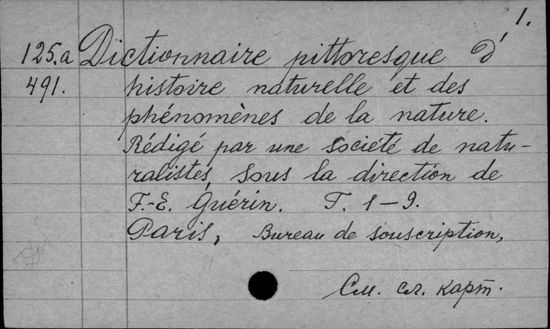 1.
125.a Dictionnaire pittoresque d'
491. histoire naturelle et des
phénomènes de la nature.
Rédigé par une societé de natu-
ralistes, sous la direction de
F.-E. Guérin. T. 1-9.
Paris, Bureau de souscription,
См. сл. карт.